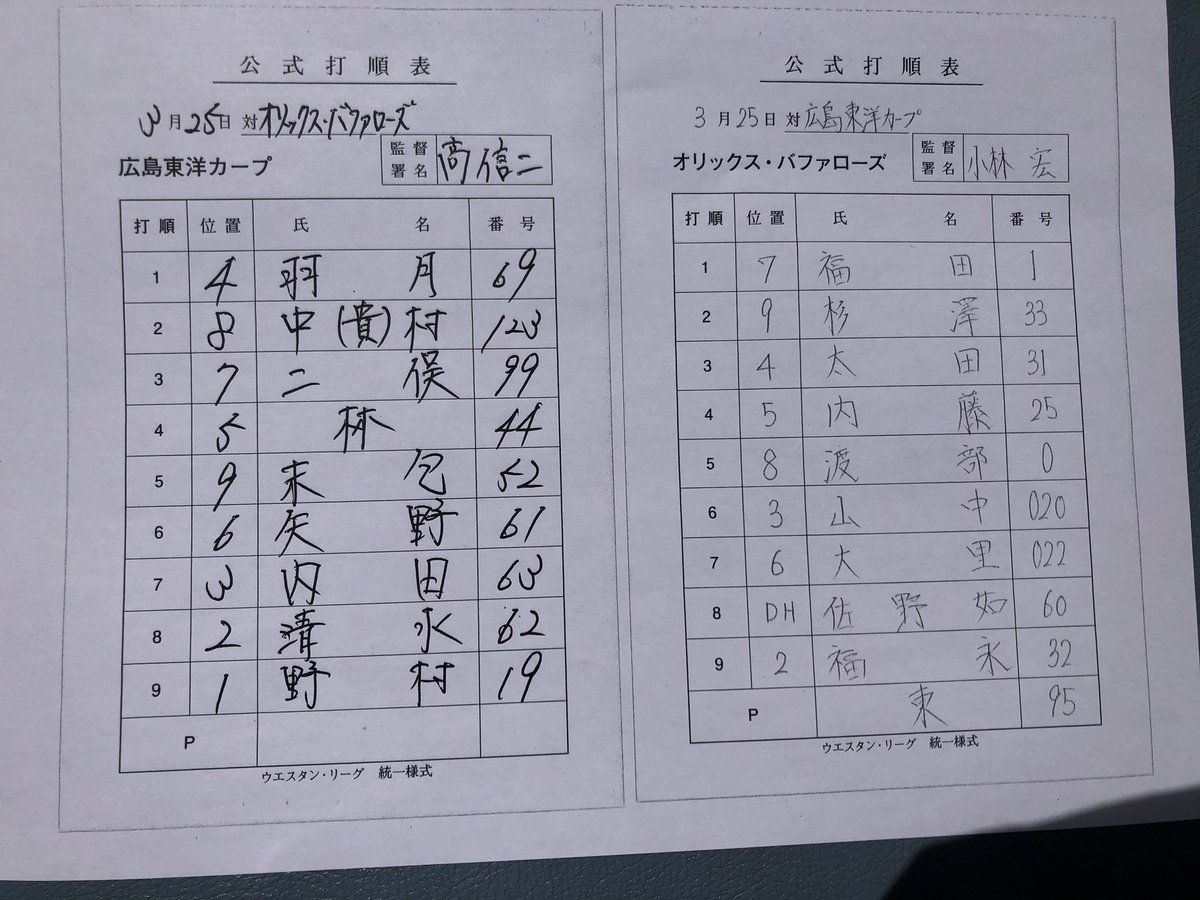 公式打順表
3月25日 対オリックス・バファローズ
広島東洋カープ 監督署名 高信二
打順 位置 氏名 番号
1 4 羽月 69
2 8 中(貴)村 123
3 7 二俣 99
4 5 林 44
5 9 末包 52
6 6 矢野 61
7 3 内田 63
8 2 清水 62
9 1 野村 19
P
ウエスタン・リーグ 統一様式
公式打順表
3月25日 対広島東洋カープ
オリックス・バファローズ 監督署名 小林 宏
打順 位置 氏名 番号
1 7 福田 1
2 9 杉澤 33
3 4 太田 31
4 5 内藤 25
5 8 渡部 0
6 3 山中 020
7 6 大里 022
8 DH 佐野如 60
9 2 福永 32
P 東 95
ウエスタン・リーグ 統一様式